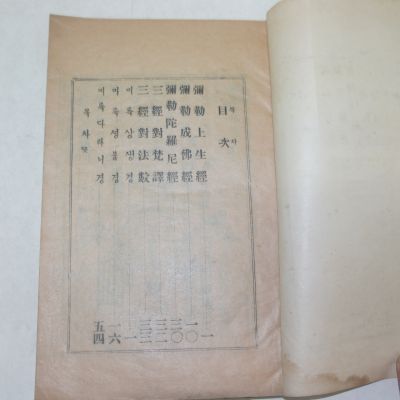 目次
목차
彌勒上生經 一
彌勒成佛經 一〇
彌勒陀羅尼經 三〇
三經對梵譯 三二
三經對法數 三三
미륵상생경 一
미륵성불경 一六
미륵다라니경 五四
목차